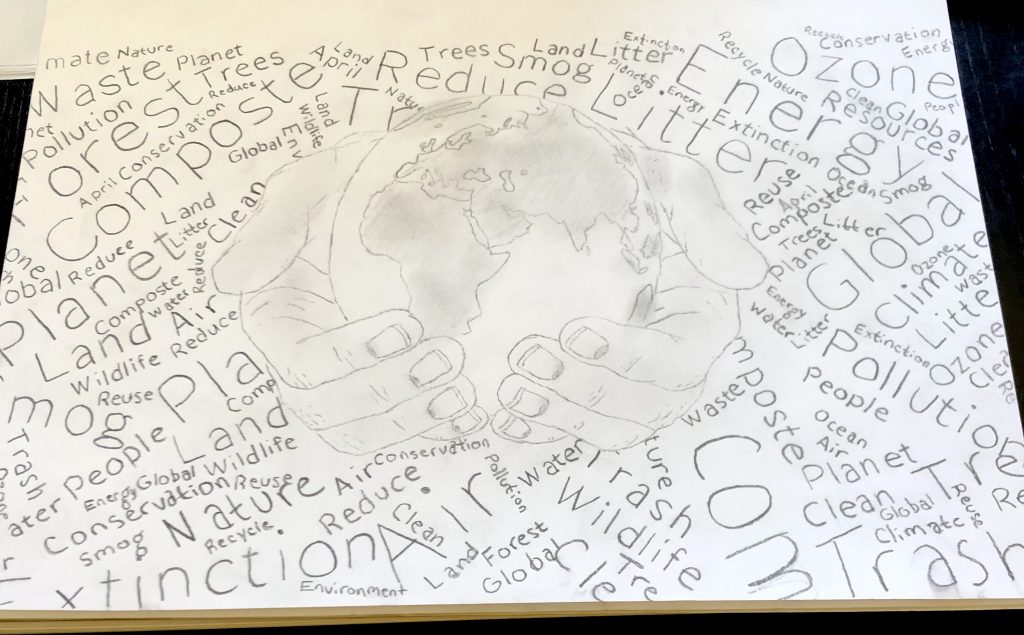 mate Nature
Waste Planet
Pollution
Forest Trees
Reduce
April Conservation
Composte
Global
Land
April
Land
Wildlife
Env
Tr
Nature
Reduce
Trees Smog
Land Litter
Extinction
Planets
Ocean
Energy
Litter
Energy
Recycle Nature
Extinction
Ozone
Recycle Conservation
Energy
Clean Global
Peopl
Resources
Reuse
April Ocean Smog
Composte
Trees Litter
Planet
Global
Energy
Water Litter
Ozone
Climate
Wast
Litte
Extinction
Pollution
Ozone
Clea
Re
People
Ocean
Air
Planet
Tre
Clean
Global
Climate
Recyc
Re
Trash
Com
mposte
Waste
ture
Trash
Water
Wildlife
Pollution
Tre
Conservation
Air
Reduce.
Air
Clean
Land Forest
Global
Environment
Extinction
Nature
Recycle.
Smog
Conservation Reuse
Energy Global Wildlife
ater People Land
Trash
mog
Reuse
Pla
Comp
Wildlife Reduce
Land Air
Composte
Water
Reduce
Planet
obal Reduce
Land
Litter
Clean